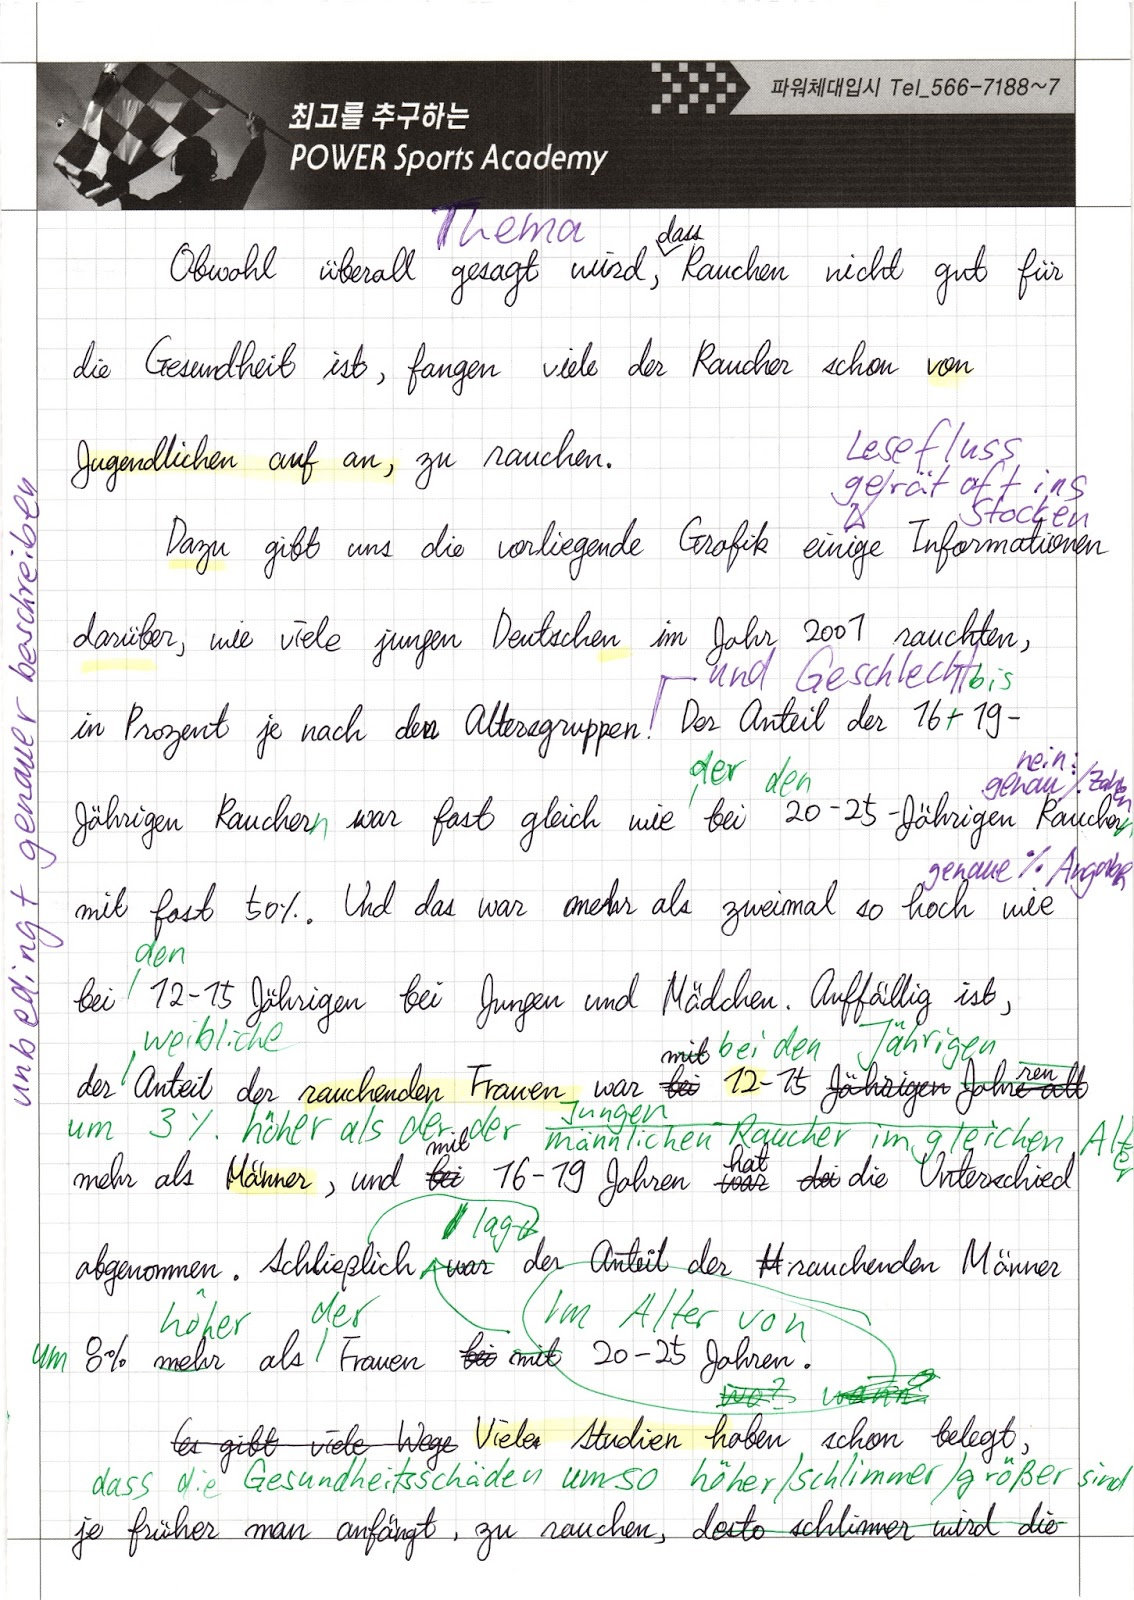 파워체대입시 Tel_566-7188~7
최고를 추구하는
POWER Sports Academy
Thema
dass
Obwohl überall gesagt wird, Rauchen nicht gut für
die Gesundheit ist, fangen viele der Raucher schon von
Jugendlichen auf an, zu rauchen.
Lesefluss
gerät oft ins
Stocken
Dazu gibt uns die vorliegende Grafik einige Informationen
darüber, wie viele jungen Deutschen im Jahr 2001 rauchten,
und Geschlecht bis
in Prozent je nach den Altersgruppen. Der Anteil der 16 + 19-
nein:
genau % Zahlen
der den
Jährigen Rauchern war fast gleich wie bei 20-25-Jährigen Rauchern
genaue % Angabe
mit fast 50%. Und das war mehr als zweimal so hoch wie
den
bei 12-15 Jährigen bei Jungen und Mädchen. Auffällig ist,
weibliche
mit bei den Jährigen
der Anteil der rauchenden Frauen war bei 12-15 Jährigen Jahren alt
um 3% höher als der der Jungen
männlichen Raucher im gleichen Alter
mit hat
mehr als Männer, und bei 16-19 Jahren war die Unterschied
lag
abgenommen. Schließlich war der Anteil der rauchenden Männer
höher der Im Alter von
um 8% mehr als Frauen bei mit 20-25 Jahren.
wo? wann?
Es gibt viele Wege Viele Studien haben schon belegt,
dass die Gesundheitsschäden umso höher/schlimmer/größer sind
je früher man anfängt, zu rauchen, desto schlimmer wird die
unbedingt genauer beschreiben